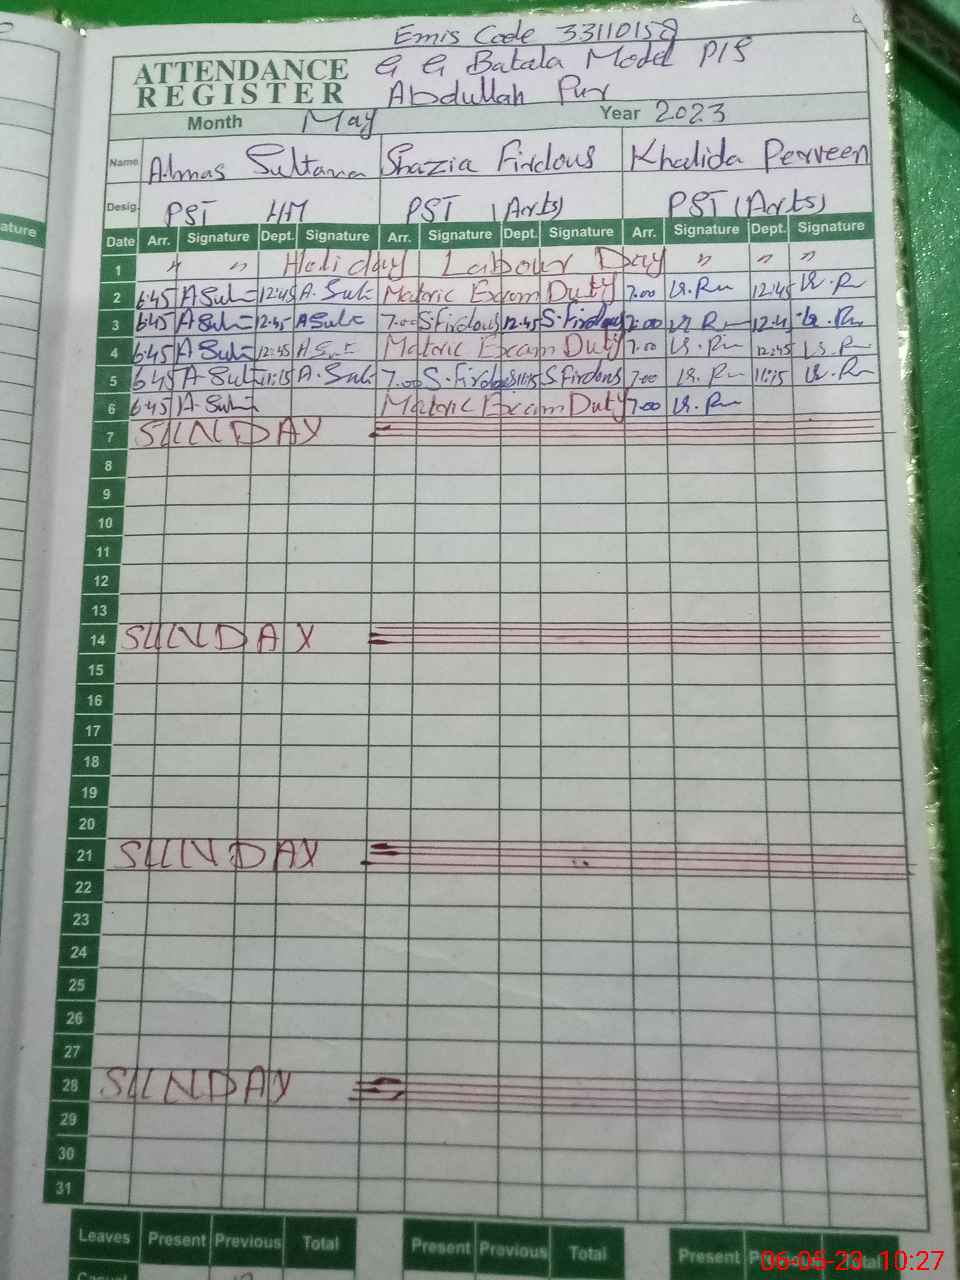 Emis Code 33110158
ATTENDANCE G G Batala Model P/S
REGISTER Abdullah Pur
Month May Year 2023
Name Almas Sultana Shazia Firdous Khalida Perveen
Desig. PST HM PST (Arts) PST (Arts)
Date Arr. Signature Dept. Signature Arr. Signature Dept. Signature Arr. Signature Dept. Signature
1 " " Holiday Labour Day " " "
2 6:45 A Sul 12:45 A. Sul Matric Exam Duty 7.00 12:45
3 6:45 A Sul 12:45 A Sul 7.00 S.Firdous 12.45 S.Firdous 7.00 12:45
4 6:45 A Sul 12:45 Matric Exam Duty 7.00 12:45
5 6:45 A Sul 11:15 A. Sul 7.00 S.Firdous 11:15 S Firdous 7.00 11:15
6 6:45 A. Sul Matric Exam Duty 7.00
7 SUNDAY
8
9
10
11
12
13
14 SUNDAY
15
16
17
18
19
20
21 SUNDAY
22
23
24
25
26
27
28 SUNDAY
29
30
31
Leaves Present Previous Total Present Previous Total Present Previous Total
Casual
06-05-23 10:27
ature